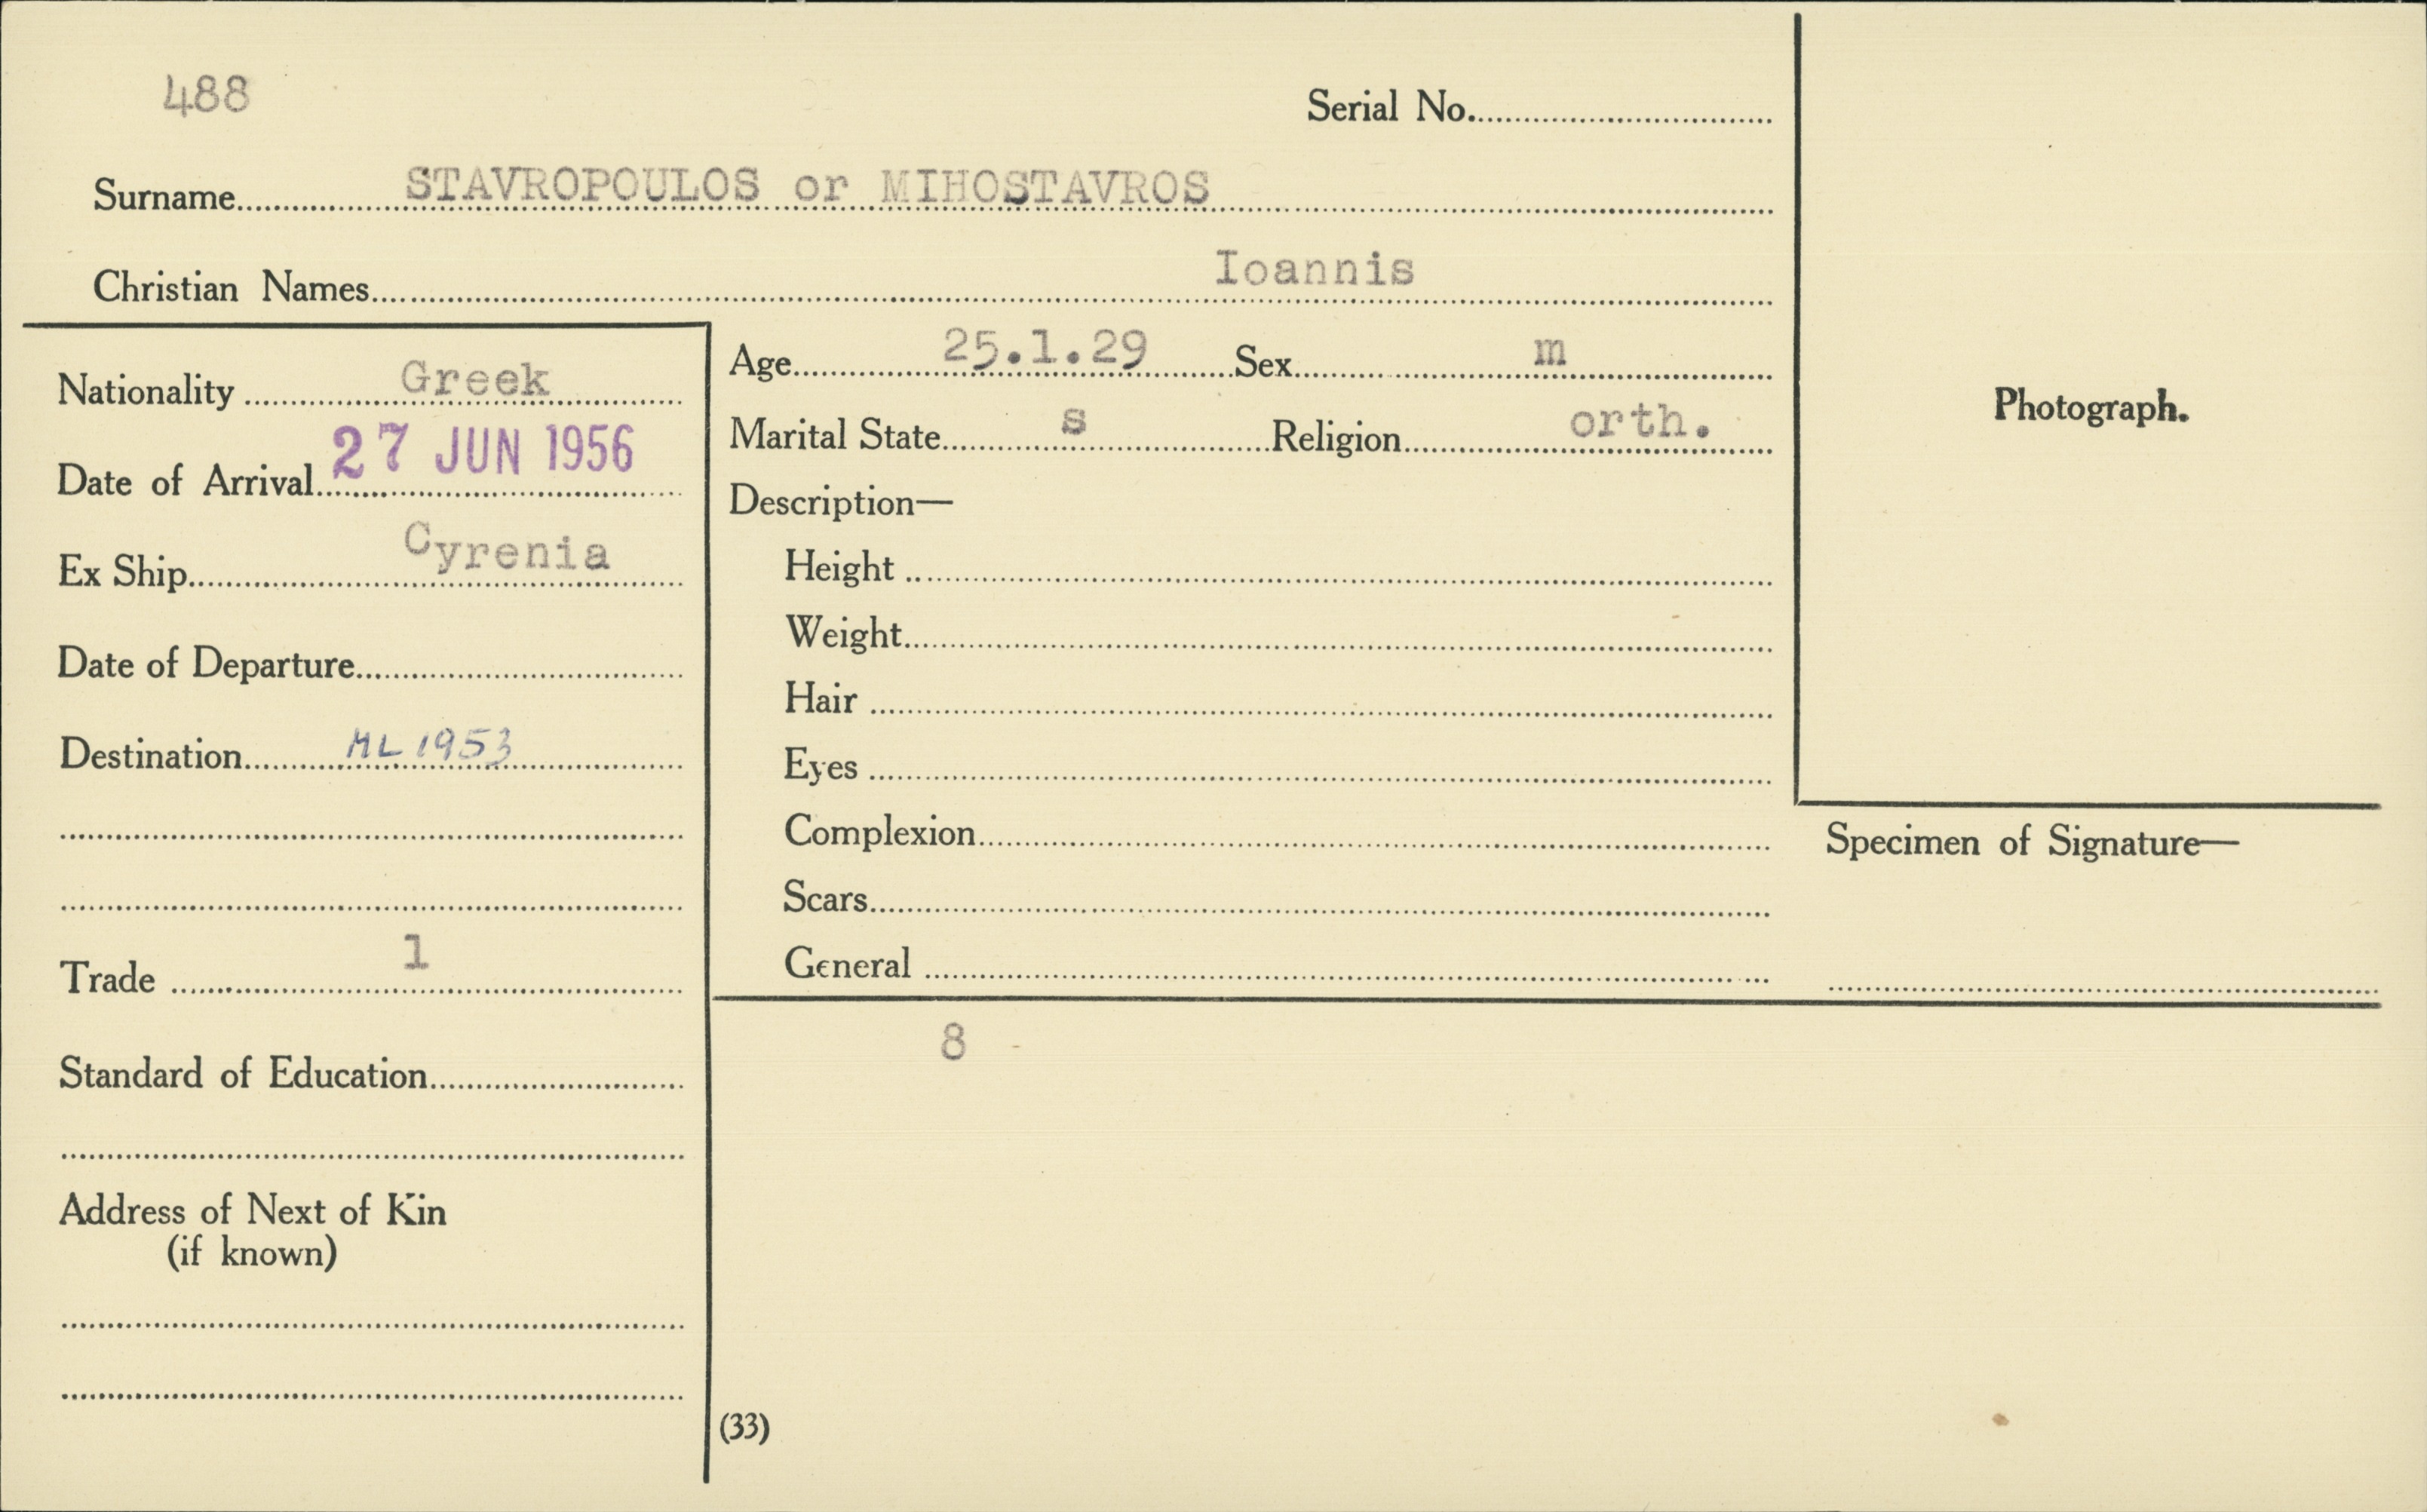 488
Serial No.
Surname STAVROPOULOS or MIHOSTAVROS
Christian Names Ioannis
Nationality Greek
Date of Arrival 27 JUN 1956
Ex Ship Cyrenia
Date of Departure
Destination ML 1953
Trade 1
Standard of Education
Address of Next of Kin
(if known)
Age 25.1.29 Sex m
Marital State s Religion orth.
Description—
Height
Weight
Hair
Eyes
Complexion
Scars
General
8
(33)
Photograph.
Specimen of Signature—